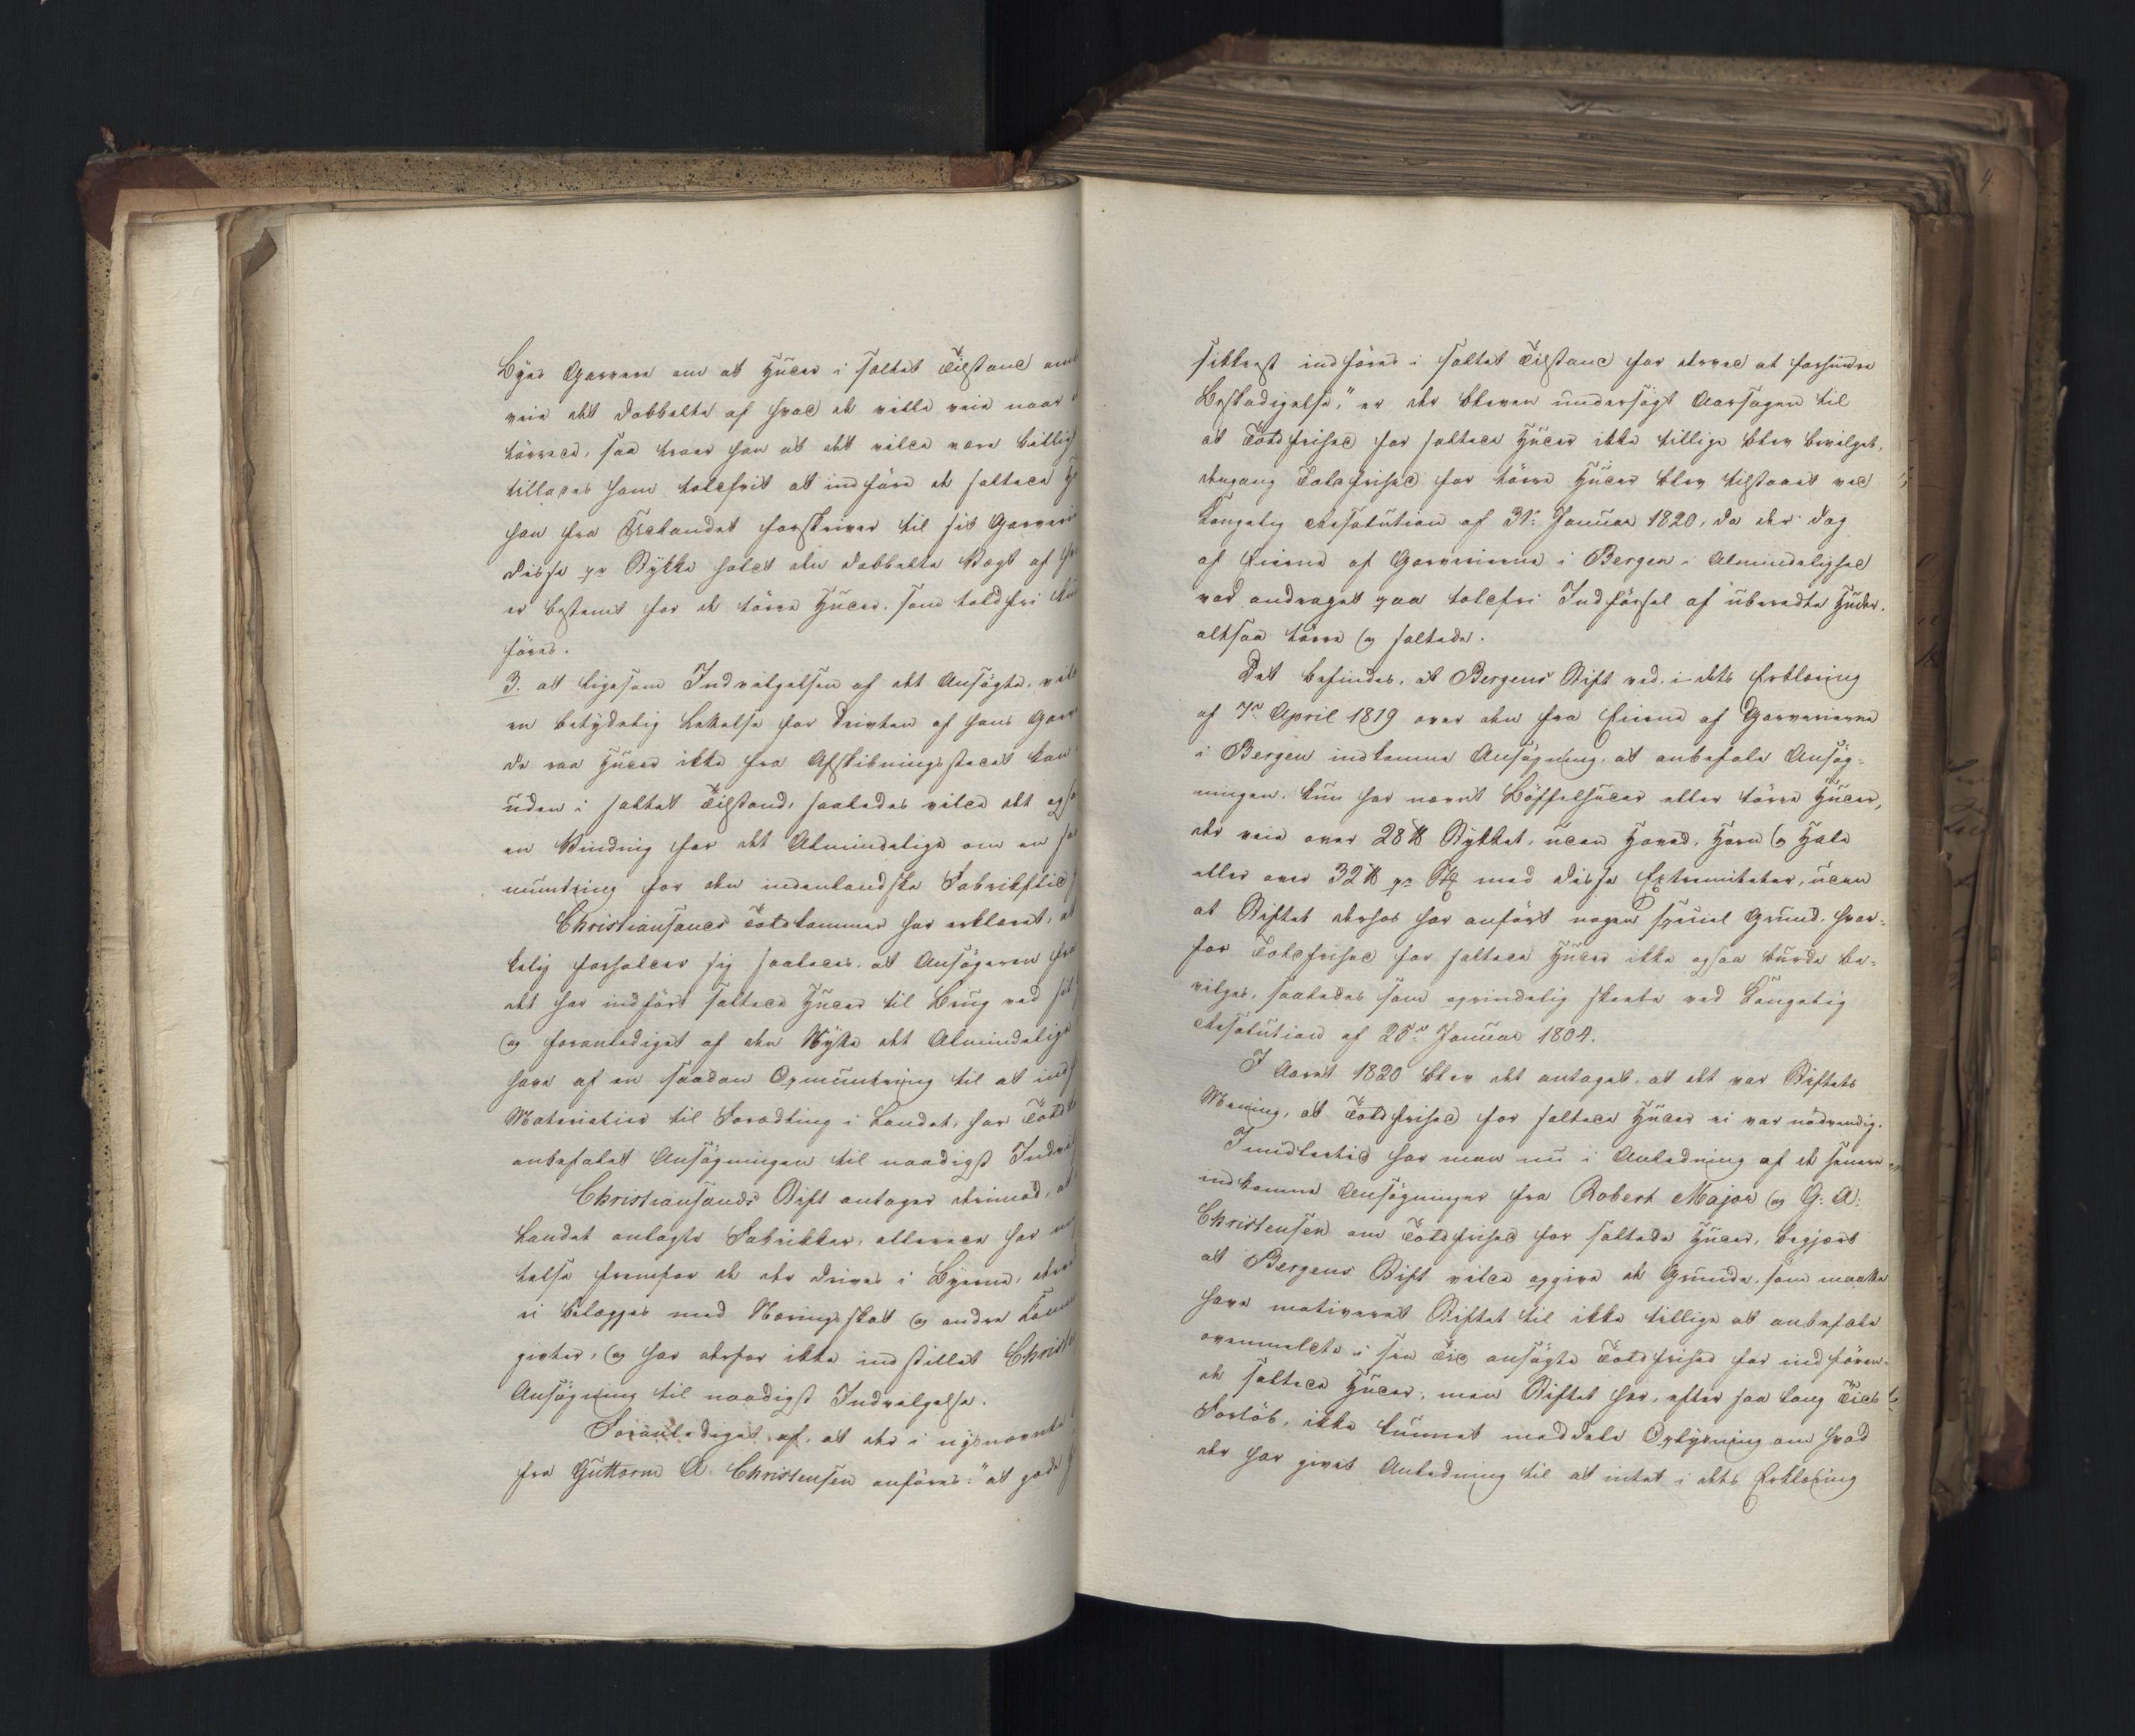 Byes Garvere om at Huder i saltet Tilstand om
veie det dobbelte af hvad de ville veie naar
tørrede, saa troer han at det vilde være billigt
tillades ham toldfrit at indføre de saltede
han fra Udlandet forskriver til sit Garveri
disse pr Stykke holdt den dobbelte Vægt af
er bestemt for de tørre Huder, som toldfri
føres.
3. at ligesom Indvilgelsen af det Ansøgte, vil
en betydelig Lettelse for Driften af hans
da raa Huder ikke fra Afskibningsstedet kan
uden i saltet Tilstand, saaledes vilde det og
en Vinding for det Almindelige om en
muntring for den indenlandske Fabrikflid
Christiansands Toldkammer har erklæret, at
kelig forholder sig saaledes, at Ansøgeren fra
det har indført saltede Huder til Brug ved sit
og foranlediget af den Nytte det Almindelige
have af en saadan Opmuntring til at ind
Materialier til Forædling i Landet, har Told
anbefalet Ansøgningen til naadigst Indvil
Christiansands Stift antager derimod, at
Landet anlagte Fabrikker, allerede har
telse fremfor de der drives i Byerne,
ei belægges med Næringsskat og andre
givter, og har derfor ikke indstillet Christ
Ansøgning til naadigst Indvilgelse.
Foranlediget af, at der i nysnævnte
fra Guttorm A. Christensen anføres: "at gode
sikkrest indføres i saltet Tilstand for derved at forhindre
Beskadigelse," er der bleven undersøgt Aarsagen til
at Toldfrihed for saltede Huder ikke tillige blev bevilget,
dengang Toldfrihed for tørre Huder blev tilstaaet ved
Kongelig Resolution af 31te Januar 1820, da der dog
af Eierne af Garverierne i Bergen i Almindelighed
var andraget paa toldfri Indførsel af uberedte Huder,
altsaa tørre og saltede.
Det befindes, at Bergens Stift ved, i dets Erklæring
af 7de April 1819 over den fra Eierne af Garverierne
i Bergen indkomne Ansøgning, at anbefale Ansøg-
ningen, kun har nævnt Bøffelhuder eller tørre Huder,
der veie over 28 ℔ Stykket, uden Hoved, Horn og Hale
eller over 32 ℔ pr St med disse Extremiteter, uden
at Stiftet derhos har anført nogen speciel Grund, hvor-
for Toldfrihed for saltede Huder ikke ogsaa burde be-
vilges, saaledes som oprindelig skeete ved Kongelig
Resolution af 25de Januar 1804.
I Aaret 1820 blev det antaget, at det var Stiftets
Mening, at Toldfrihed for saltede Huder ei var nødvendig.
Imidlertid har man nu i Anledning af de senere
indkomne Ansøgninger fra Robert Major og G: A:
Christensen om Toldfrihed for saltede Huder, begjært
at Bergens Stift vilde opgive de Grunde, som maatte
have motiveret Stiftet til ikke tillige at anbefale
ovenmeldte i sin Tid ansøgte Toldfrihed for indføren-
de saltede Huder; men Stiftet har, efter saa lang Tids
Forløb, ikke kunnet meddele Oplysning om hvad
der har givet Anledning til at intet i dets Erklæring